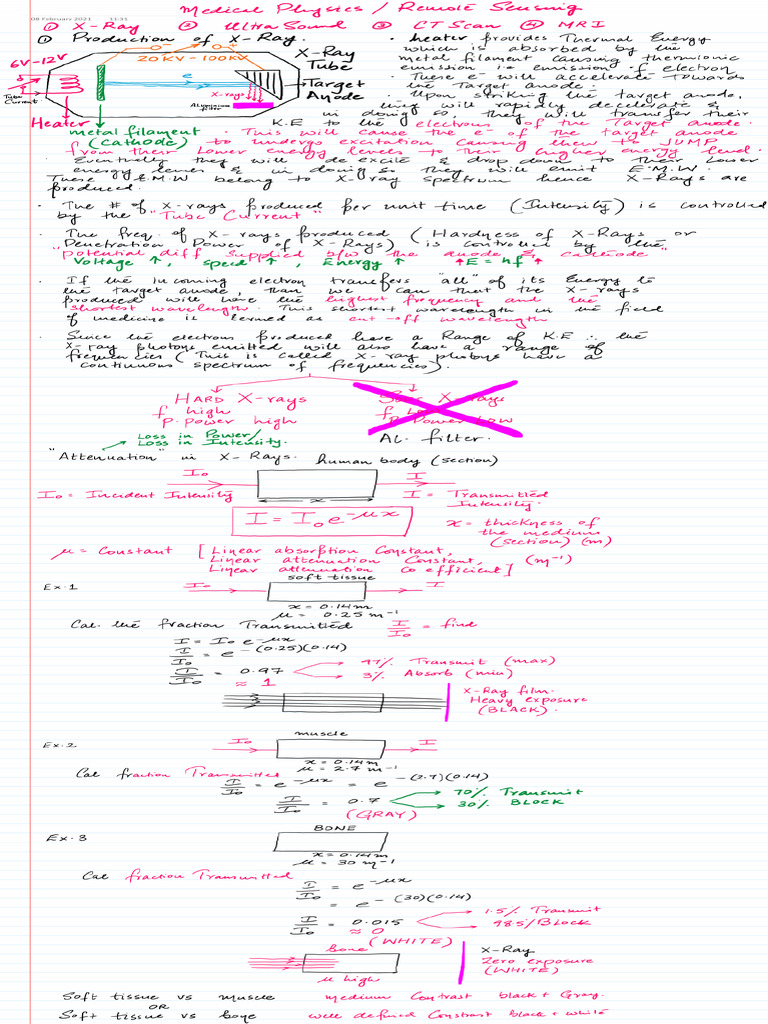 Medical Physics / Remote Sensing
08 February 2021 11:31
① X-Ray ② Ultra Sound ③ CT Scan ④ MRI
① Production of X-Ray.
6V-12V
20KV-100KV
X-Ray
Tube
e
X-rays
Target
Anode
Tube
Current
Aluminium
filter
Heater
metal filament
(Cathode)
• heater provides Thermal Energy
which is absorbed by the
metal filament causing thermionic
emission i.e emission of electron
• These e will accelerate towards
the Target anode.
• Upon striking the target anode,
they will rapidly decelerate &
in doing so they will transfer their
K.E to the electrons of the Target anode.
• This will cause the e of the target anode
to undergo excitation causing them to JUMP
from their lower energy levels to their higher energy level.
• Eventually they will de excite & drop down to their lower
energy levels & in doing so they will emit E.M.W.
These E.M.W belong to X-ray spectrum hence X-Rays are
produced.
• The # of X-rays produced per unit time (Intensity) is controlled
by the "Tube Current"
• The freq. of X-rays produced (Hardness of X-Rays or
Penetration Power of X-Rays) is controlled by the
"potential diff supplied b/w the anode & cathode"
Voltage ↑, speed ↑, Energy ↑ ↑E = hf↑
• If the incoming electron transfers "all" of its Energy to
the target anode, than we can that the X-rays
produced will have the highest frequency and the
shortest wavelength. This shortest wavelength in the field
of medicine is termed as cut-off wavelength
• Since the electrons produced have a Range of K.E ∴ the
X-ray photons emitted will also have a range of
frequencies (This is called X-ray photons have a
continuous spectrum of frequencies).
HARD X-rays
f high
p. power high
Soft X-rays
f Low
p. Power Low
AL. filter.
Loss in Power/
Loss in Intensity.
"Attenuation" in X-Rays.
human body (section)
I₀
I
x
I₀ = Incident Intensity
I = Transmitted
Intensity.
I = I₀e^-μx
x = thickness of
the medium
(section) (m)
μ = Constant [Linear absorption Constant,
Linear attenuation Constant,
Linear attenuation Co efficient] (m⁻¹)
Ex.1
soft tissue
I₀
I
x = 0.14m
μ = 0.25 m⁻¹
Cal. the fraction Transmitted I/I₀ = find
I = I₀ e^-μx
I/I₀ = e^-(0.25)(0.14)
I/I₀ = 0.97
≈ 1
97% Transmit (max)
3% Absorb (min)
X-Ray film.
Heavy exposure
(BLACK).
Ex.2
muscle
I₀
I
x = 0.14m
μ = 2.7 m⁻¹
Cal fraction Transmitted
I/I₀ = e^-μx = e^-(2.7)(0.14)
I/I₀ = 0.7
(GRAY)
70% Transmit
30% BLOCK
Ex.3
BONE
x = 0.14m
μ = 30 m⁻¹
Cal fraction Transmitted
I/I₀ = e^-μx
= e^-(30)(0.14)
I/I₀ = 0.015
≈ 0
(WHITE)
1.5% Transmit
98.5/Block
bone
μ high
X-Ray
Zero exposure
(WHITE)
Soft tissue vs muscle medium Contrast black + Gray.
OR
Soft tissue vs bone well defined Constrast black + white